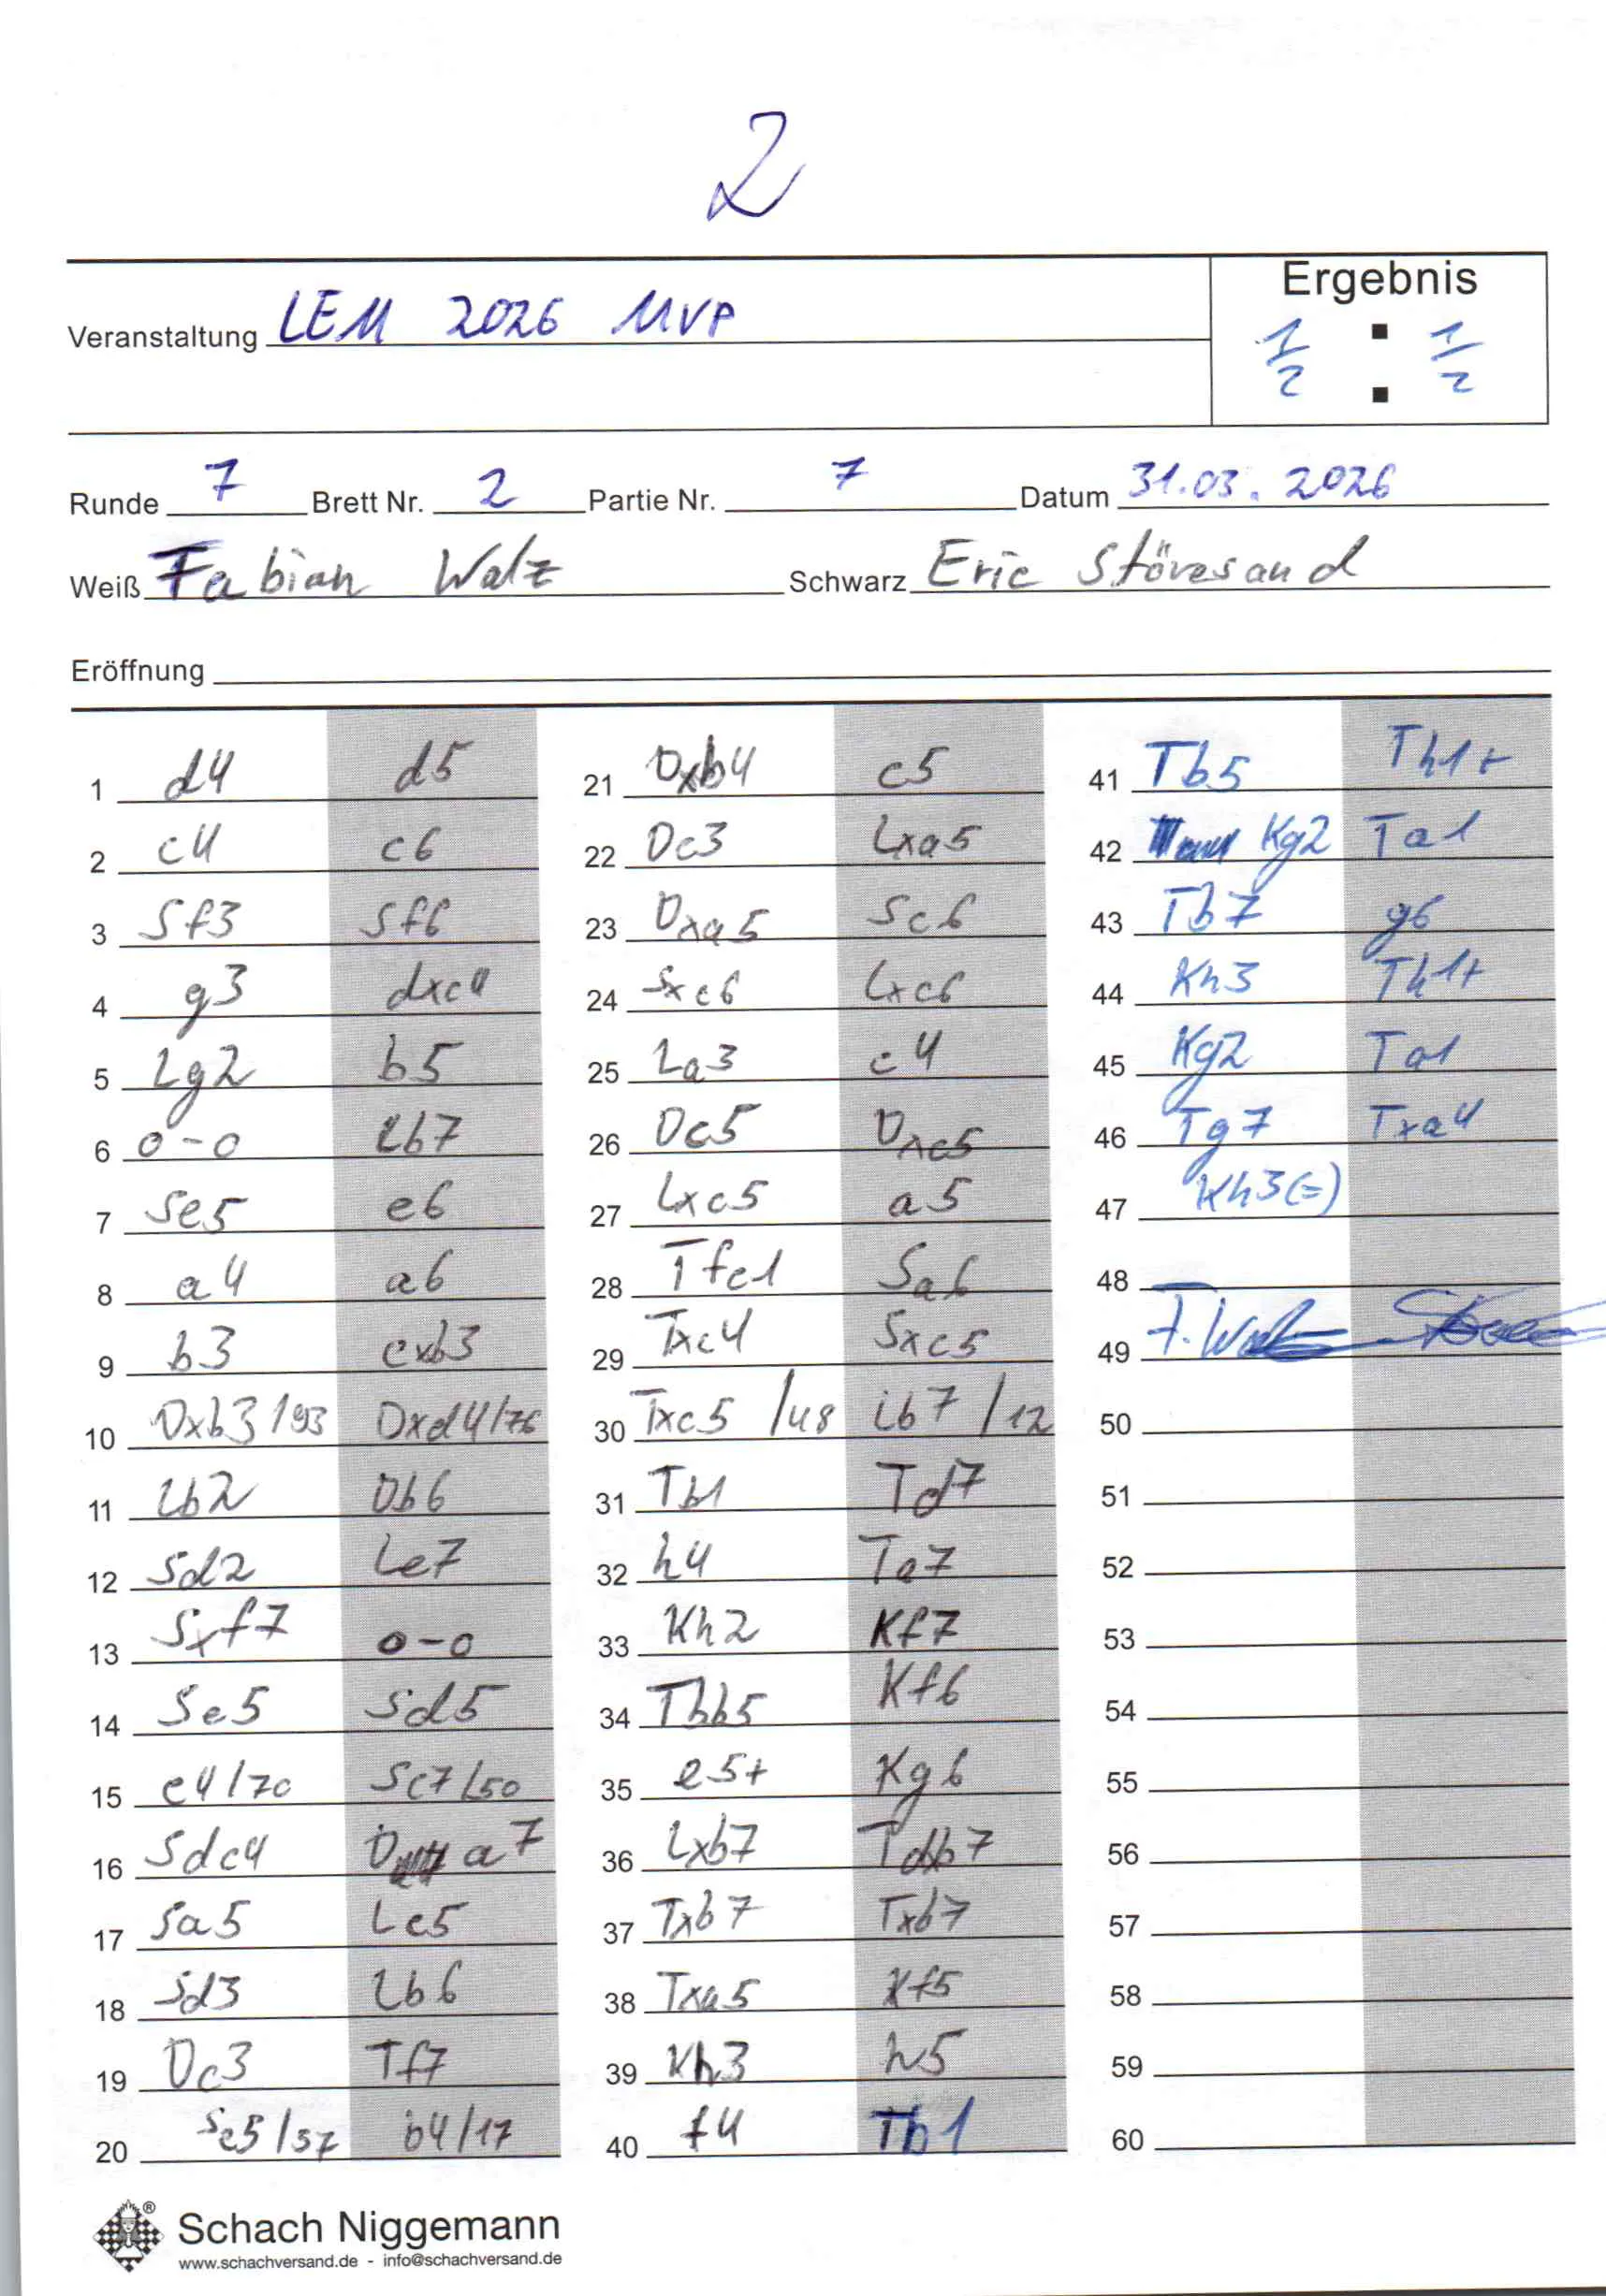 2
Veranstaltung LEM 2026 MVP
Ergebnis
1/2 : 1/2
Runde 7 Brett Nr. 2 Partie Nr. 7 Datum 31.03.2026
Weiß Fabian Walz Schwarz Eric Stövesand
Eröffnung
1 d4 d5
2 c4 c6
3 Sf3 Sf6
4 g3 dxc4
5 Lg2 b5
6 0-0 Lb7
7 Se5 e6
8 a4 a6
9 b3 cxb3
10 Dxb3/93 Dxd4/76
11 Lb2 Db6
12 Sd2 Le7
13 Sxf7 0-0
14 Se5 Sd5
15 e4/70 Sc7/50
16 Sdc4 Da7
17 Sa5 Lc5
18 Sd3 Lb6
19 Dc3 Tf7
20 Se5/57 b4/17
21 Dxb4 c5
22 Dc3 Lxa5
23 Dxa5 Sc6
24 Sxc6 Lxc6
25 La3 c4
26 Dc5 Dxc5
27 Lxc5 a5
28 Tfc1 Sa6
29 Txc4 Sxc5
30 Txc5 /48 Lb7 /12
31 Tb1 Td7
32 h4 Ta7
33 Kh2 Kf7
34 Tbb5 Kf6
35 e5+ Kg6
36 Lxb7 Tdxb7
37 Txb7 Txb7
38 Txa5 Kf5
39 Kh3 h5
40 f4 Tb1
41 Tb5 Th1+
42 Kg2 Ta1
43 Tb7 g6
44 Kh3 Th1+
45 Kg2 Ta1
46 Tg7 Txa4
47 Kh3(=)
48
49 F. Walz
50
51
52
53
54
55
56
57
58
59
60
Schach Niggemann
www.schachversand.de - info@schachversand.de